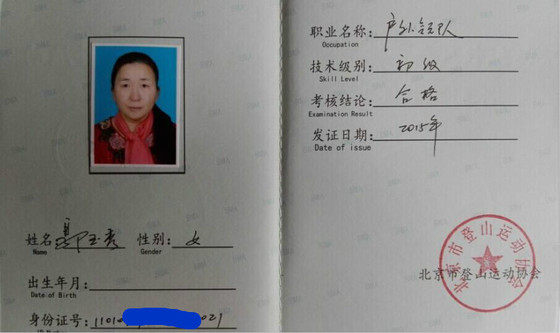 姓名 郭玉秀 性别: 女
Name Gender
出生年月:
Date of Birth
身份证号: 11010 021
职业名称: 户外领队
Occupation
技术级别: 初级
Skill Level
考核结论: 合格
Examination Result
发证日期: 2015年
Date of issue
北京市登山运动协会
北京市登山运动协会